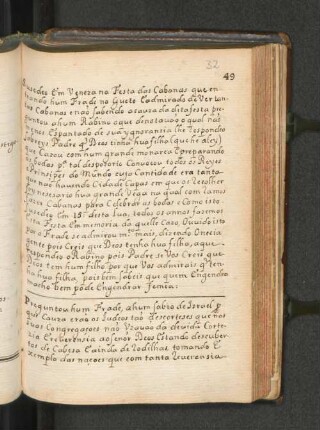 32
49
Sucedeo Em Veneza na Festa das Cabanas que en
trando hum Frade no Gueto Cadmirado de Ver tan
tas Cabanas e não sabendo a causa da dita festa pre
guntou a hum Rabino o que denotavão o qual
Espantado de sua ygnorancia lhe Respondeo
Padre q Deos tinha hua filha (que he a ley)
Cazou com hum grande monarca E preparando
bodas p.ª tal despozorio Convocou todos os Reyes
E Prinsipes do Mundo cuja Cantidade era tanta
que não havendo Cidade Capas em que os Recolher
foy nesesario hua grande Veiga na qual com Ramos
fazer Cabanas para Celebrar as bodas e Como isto
sucedeo Em 15 desta Lua, todos os annos fazemos
esta Festa Em memoria daquelle Cazo, Ouvindo isto
o Frade se admirou m.to mais, dizendo
pois Creis que Deos tenha hua filha, a que
Respondeo o Rabino pois Padre se Vos Creis que
Deos tem hum filho por que Vos admirais q ten
ha hua filha, pois bem sabeis que quem Engendra
macho bem póde Engendrar femia.
Preguntou hum Frade, a hum sabio de Israel p
que Cauza erão os Judeos tão descorteses que nas
suas Congregaçoes não Uzavão da devida Corte
zia E reverencia ao Senor Deos Estando descuber
tos de Cabesa E ainda de Rodilhas tomando E
xemplo das naçoes que com tanta reverensia